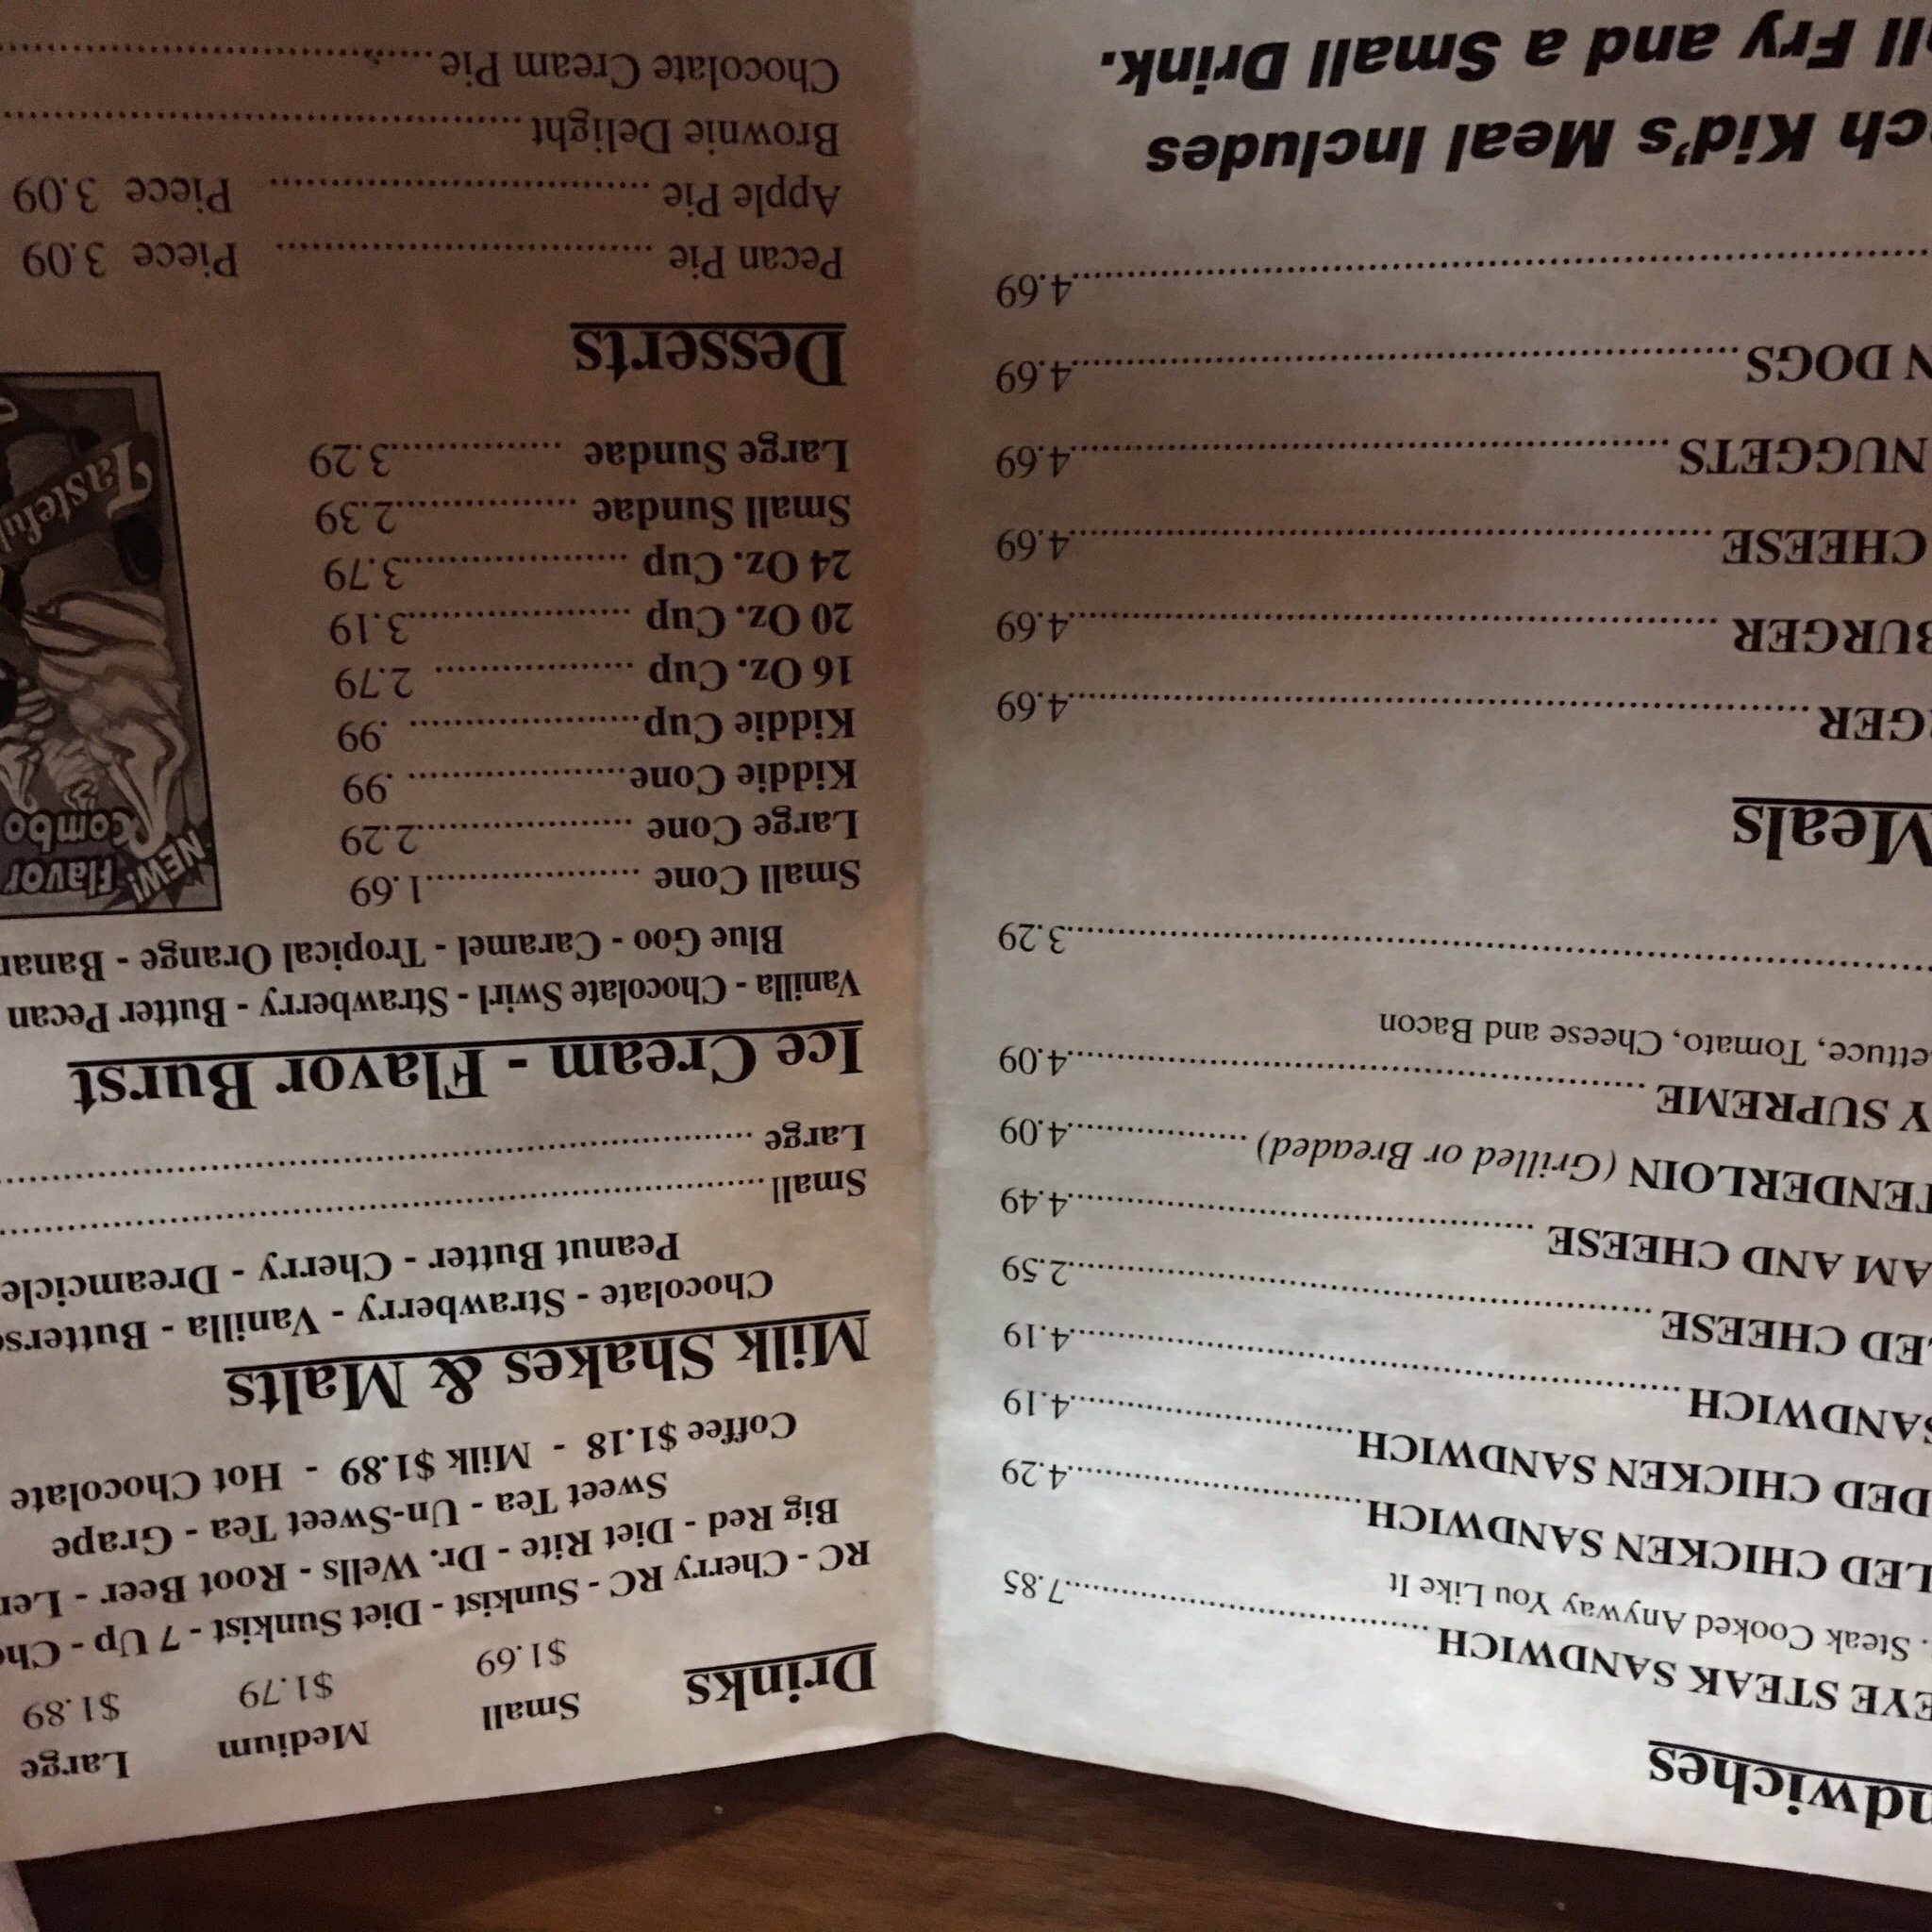 ndwiches
EYE STEAK SANDWICH 7.85
. Steak Cooked Anyway You Like It
LED CHICKEN SANDWICH 4.29
DED CHICKEN SANDWICH 4.19
SANDWICH 4.19
LED CHEESE 2.59
AM AND CHEESE 4.49
TENDERLOIN (Grilled or Breaded) 4.09
Y SUPREME 4.09
ettuce, Tomato, Cheese and Bacon
3.29
Meals
GER 4.69
BURGER 4.69
CHEESE 4.69
NUGGETS 4.69
N DOGS 4.69
4.69
ch Kid's Meal Includes
ll Fry and a Small Drink.
Drinks Small Medium Large
$1.69 $1.79 $1.89
RC - Cherry RC - Sunkist - Diet Sunkist - 7 Up - Ch
Big Red - Diet Rite - Dr. Wells - Root Beer - Le
Sweet Tea - Un-Sweet Tea - Grape
Coffee $1.18 - Milk $1.89 - Hot Chocolate
Milk Shakes & Malts
Chocolate - Strawberry - Vanilla - Butters
Peanut Butter - Cherry - Dreamcicle
Small
Large
Ice Cream - Flavor Burst
Vanilla - Chocolate Swirl - Strawberry - Butter Pecan
Blue Goo - Caramel - Tropical Orange - Banan
Small Cone 1.69
Large Cone 2.29
Kiddie Cone .99
Kiddie Cup .99
16 Oz. Cup 2.79
20 Oz. Cup 3.19
24 Oz. Cup 3.79
Small Sundae 2.39
Large Sundae 3.29
NEW! Flavor
Combo
Tasteful
Desserts
Pecan Pie Piece 3.09
Apple Pie Piece 3.09
Brownie Delight
Chocolate Cream Pie